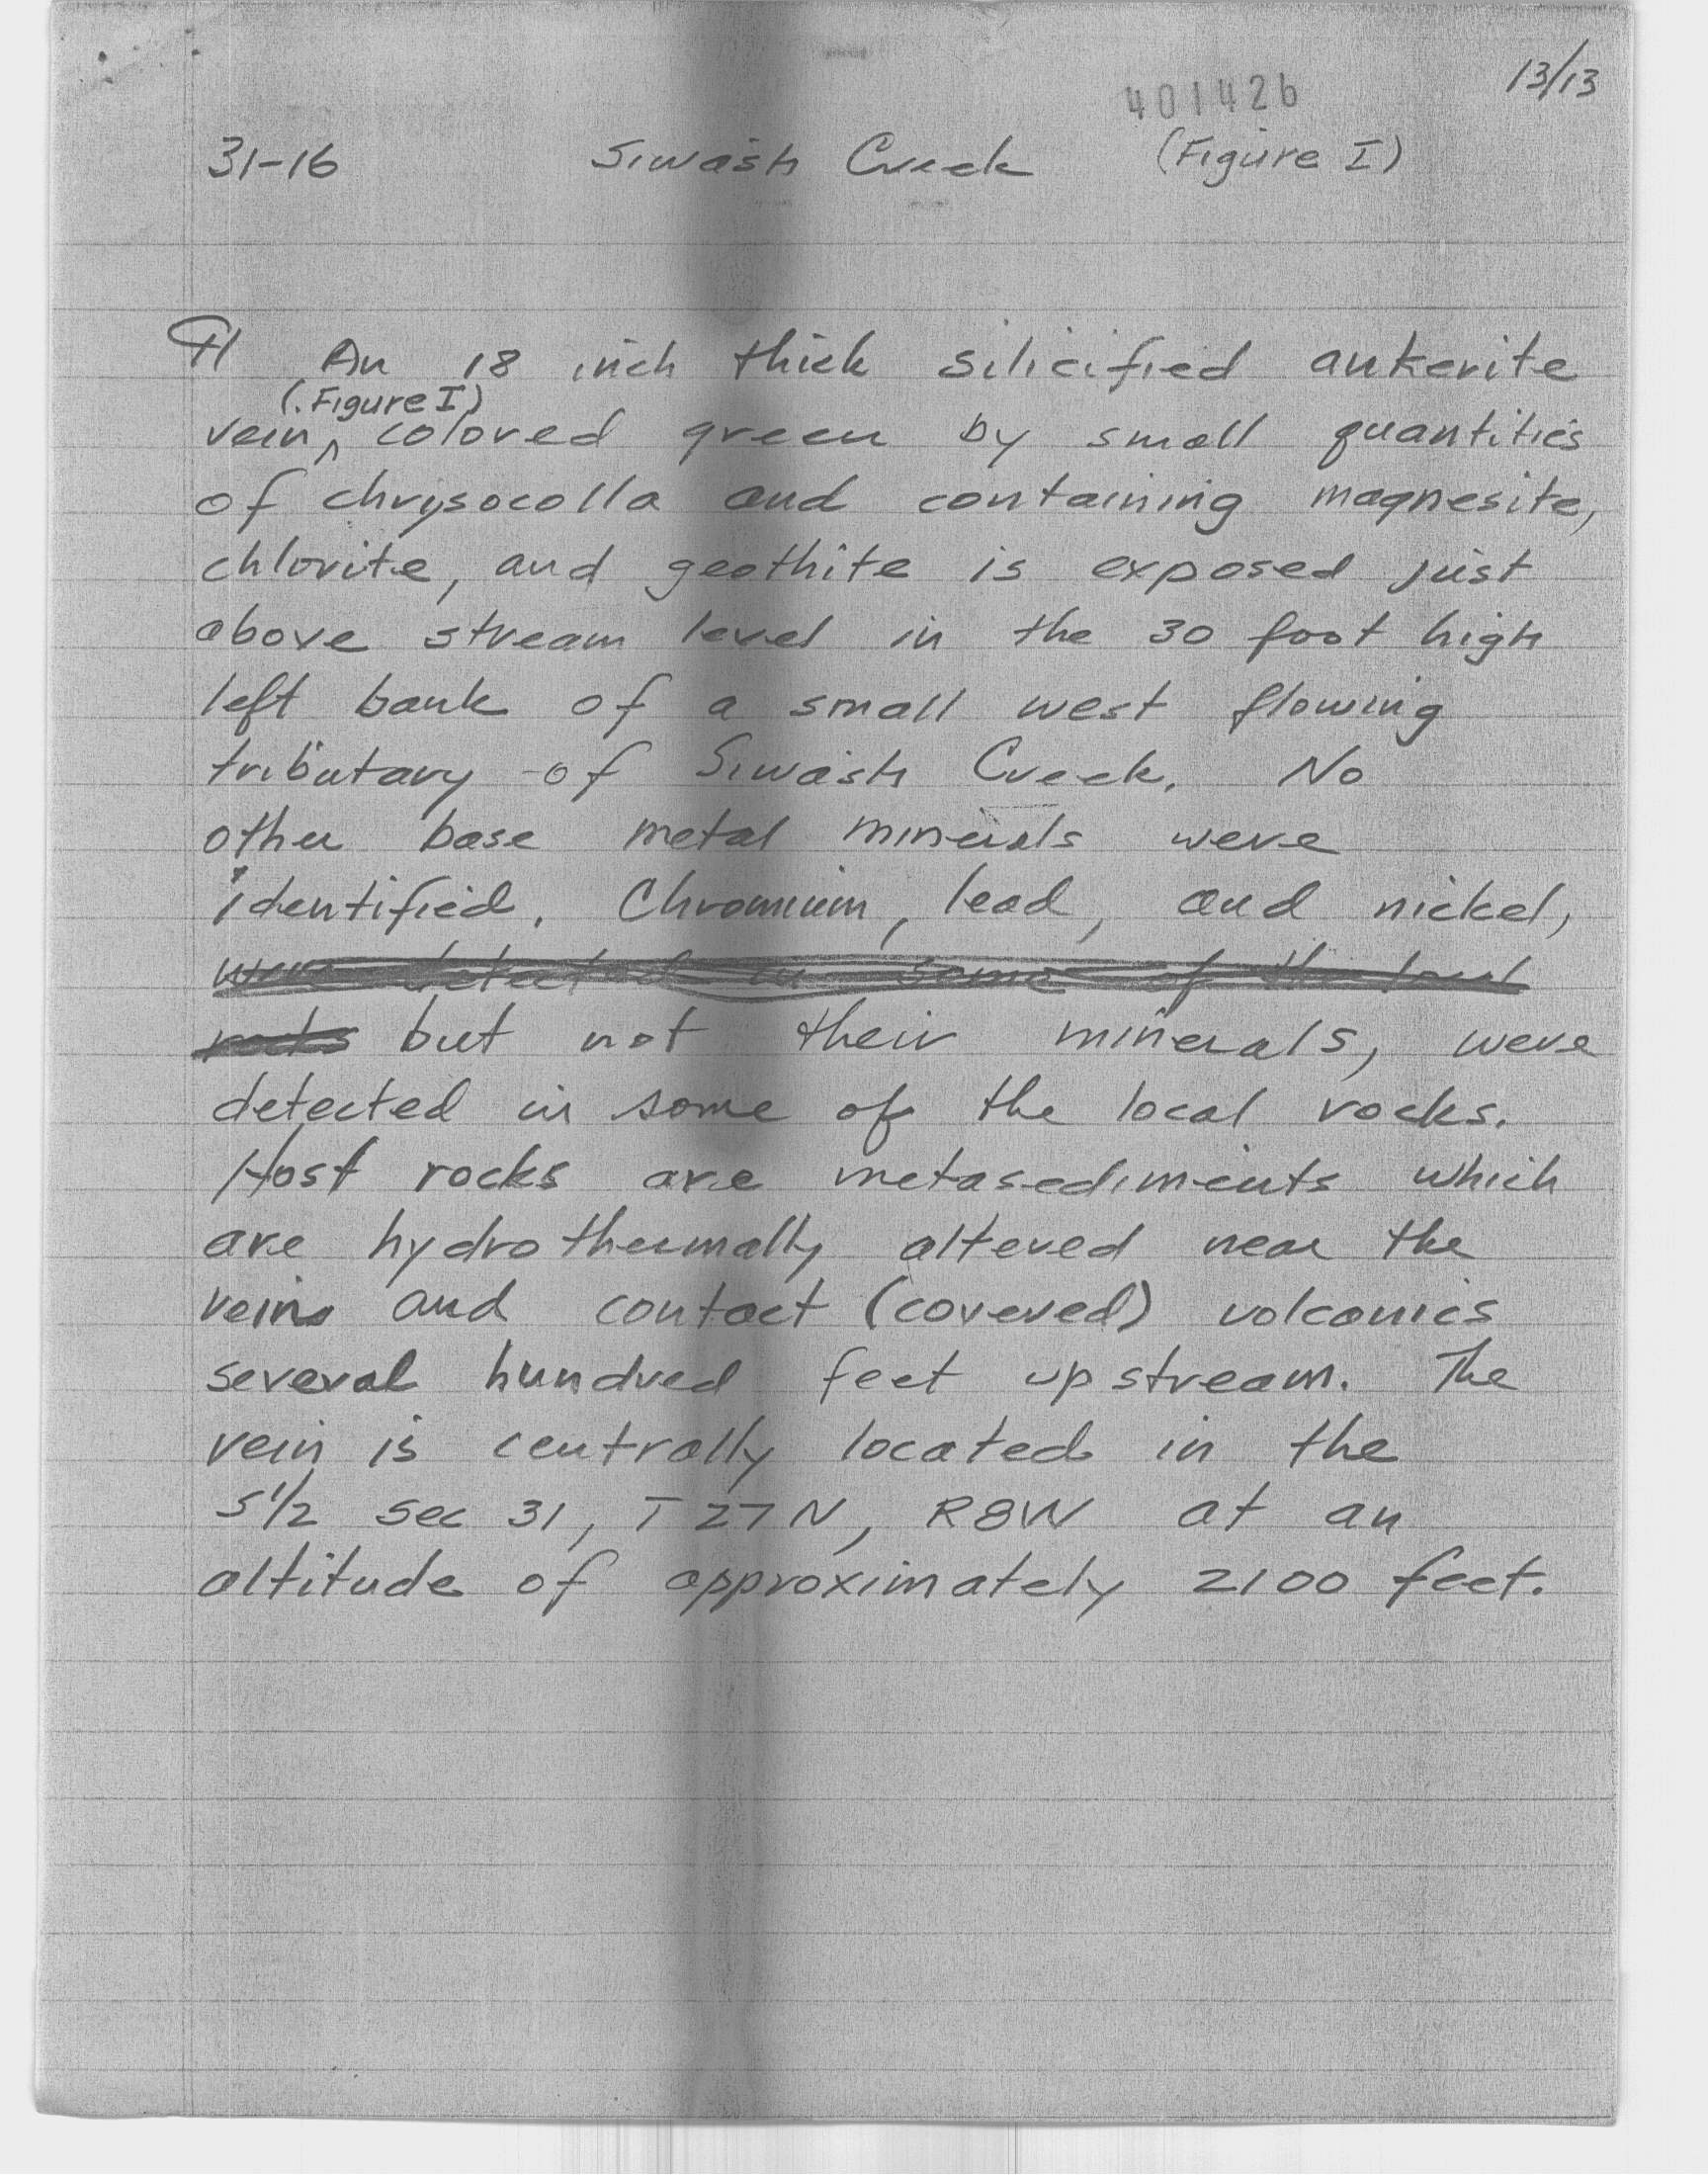 13/13
401426
31-16 Siwash Creek (Figure I)
¶ An 18 inch thick silicified ankerite
(Figure I)
vein, colored green by small quantities
of chrysocolla and containing magnesite,
chlorite, and geothite is exposed just
above stream level in the 30 foot high
left bank of a small west flowing
tributary of Siwash Creek. No
other base metal minerals were
identified. Chromium, lead, and nickel,
were detected in some of the local
rocks but not their minerals, were
detected in some of the local rocks.
Host rocks are metasediments which
are hydrothermally altered near the
veins and contact (covered) volcanics
several hundred feet upstream. The
vein is centrally located in the
S½ sec 31, T27N, R8W at an
altitude of approximately 2100 feet.